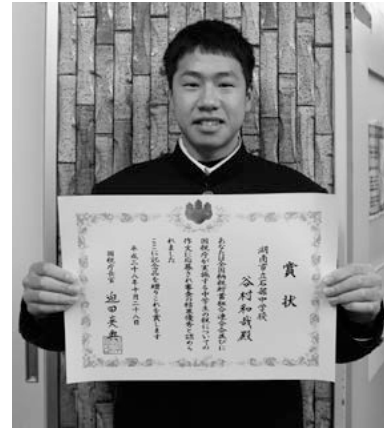 賞状
湖南市立石部中学校
谷村和哉殿
あなたは全国納税貯蓄組合連合会並びに
国税庁が実施する中学生の税についての
作文に応募され審査の結果優秀と認めら
れました
ここに記念品を贈りこれを賞します
平成二十八年十月二十八日
国税庁長官
迫田英典